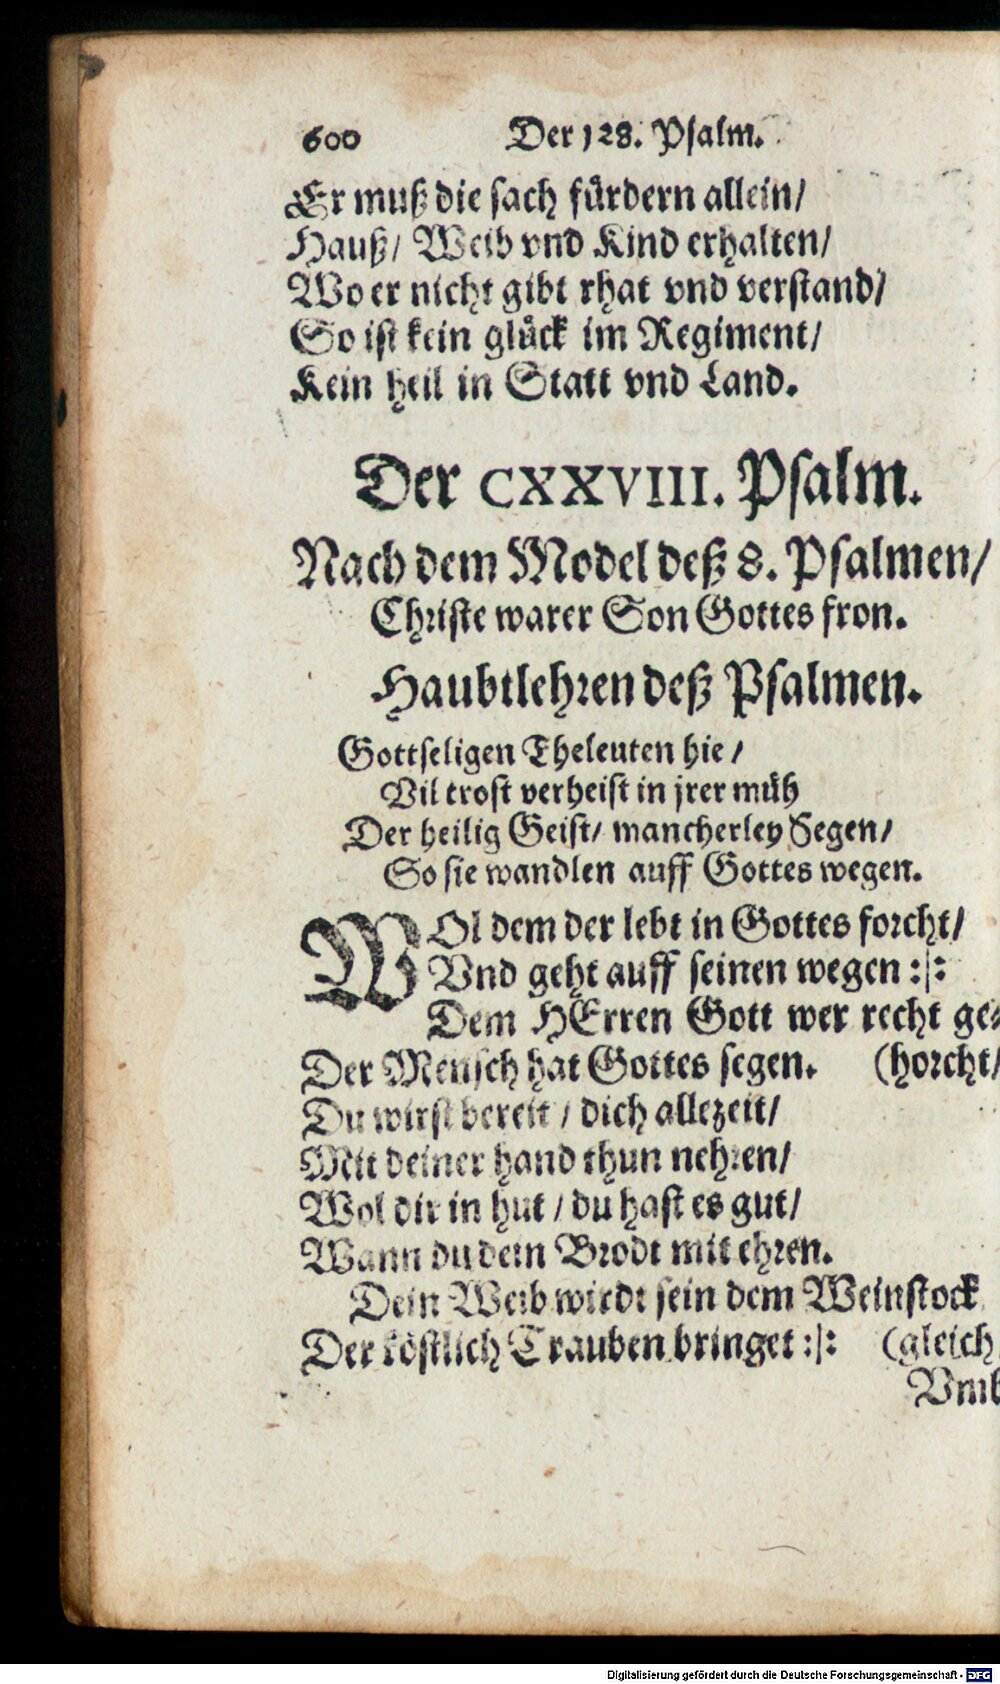 600 Der 128. Psalm.
Er muß die sach fürdern allein/
Hauß/ Weib vnd Kind erhalten/
Wo er nicht gibt rhat vnd verstand/
So ist kein glück im Regiment/
Kein heil in Statt vnd Land.
Der CXXVIII. Psalm.
Nach dem Model deß 8. Psalmen/
Christe warer Son Gottes fron.
Haubtlehren deß Psalmen.
Gottseligen Eheleuten hie/
Vil trost verheist in jrer müh
Der heilig Geist/ mancherley Segen/
So sie wandlen auff Gottes wegen.
WOl dem der lebt in Gottes forcht/
Vnd geht auff seinen wegen :|:
Dem HErren Gott wer recht ge-
Der Mensch hat Gottes segen. (horcht/
Du wirst bereit / dich allezeit/
Mit deiner hand thun nehren/
Wol dir in hut / du hast es gut/
Wann du dein Brodt mit ehren.
Dein Weib wirdt sein dem Weinstock
Der köstlich Trauben bringet :|: (gleich
Vmb
Digitalisierung gefördert durch die Deutsche Forschungsgemeinschaft - DFG